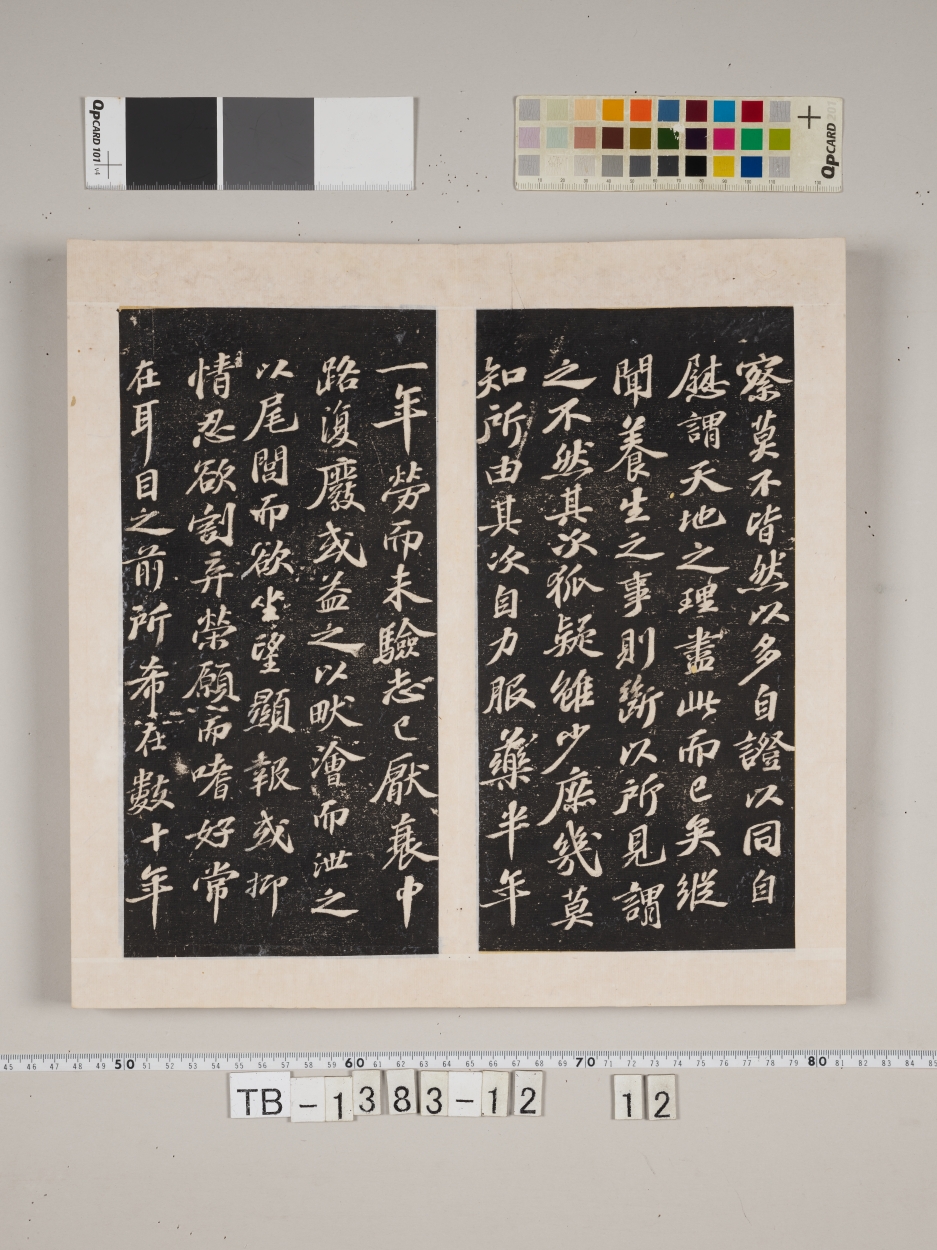 QPCARD 101 v4
QPCARD 201
察莫不皆然以多自證以同自
慰謂天地之理盡此而已矣縱
聞養生之事則斷以所見謂
之不然其次狐疑雖少庶幾莫
知所由其次自力服藥半年
一年勞而未驗志已厭衰中
路復廢或益之以畎澮而泄之
以尾閭而欲坐望顯報或抑
情忍欲割弃榮願而嗜好常
在耳目之前所希在數十年
45 46 47 48 49 50 51 52 53 54 55 56 57 58 59 60 61 62 63 64 65 66 67 68 69 70 71 72 73 74 75 76 77 78 79 80 81 82 83 84 85
TB-1383-12 12